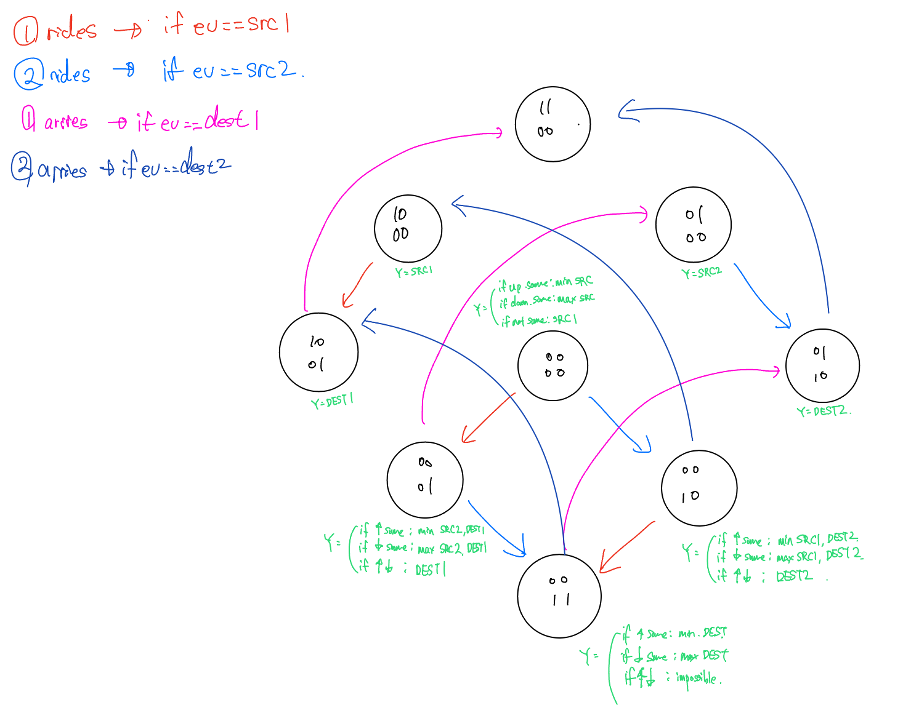 ① rides → if ev==src1
② rides → if ev==src2.
① arrives → if ev==dest1
② arries → if ev==dest2
11
00
10
00
Y=SRC1
01
00
Y=SRC2
Y=
if up.same: min SRC
if down.same: max SRC
if not same: SRC1
10
01
Y=DEST1
00
00
01
10
Y=DEST2.
00
01
Y=
if ↑ same; min SRC2, DEST1
if ↓ same; max SRC2, DEST1
if ↑↓ ; DEST1
00
10
Y=
if ↑ same; min SRC1, DEST2
if ↓ same; max SRC1, DEST2
if ↑↓ ; DEST2.
00
11
Y=
if ↑ same; min. DEST
if ↓ same; max DEST
if ↑↓ ; impossible.